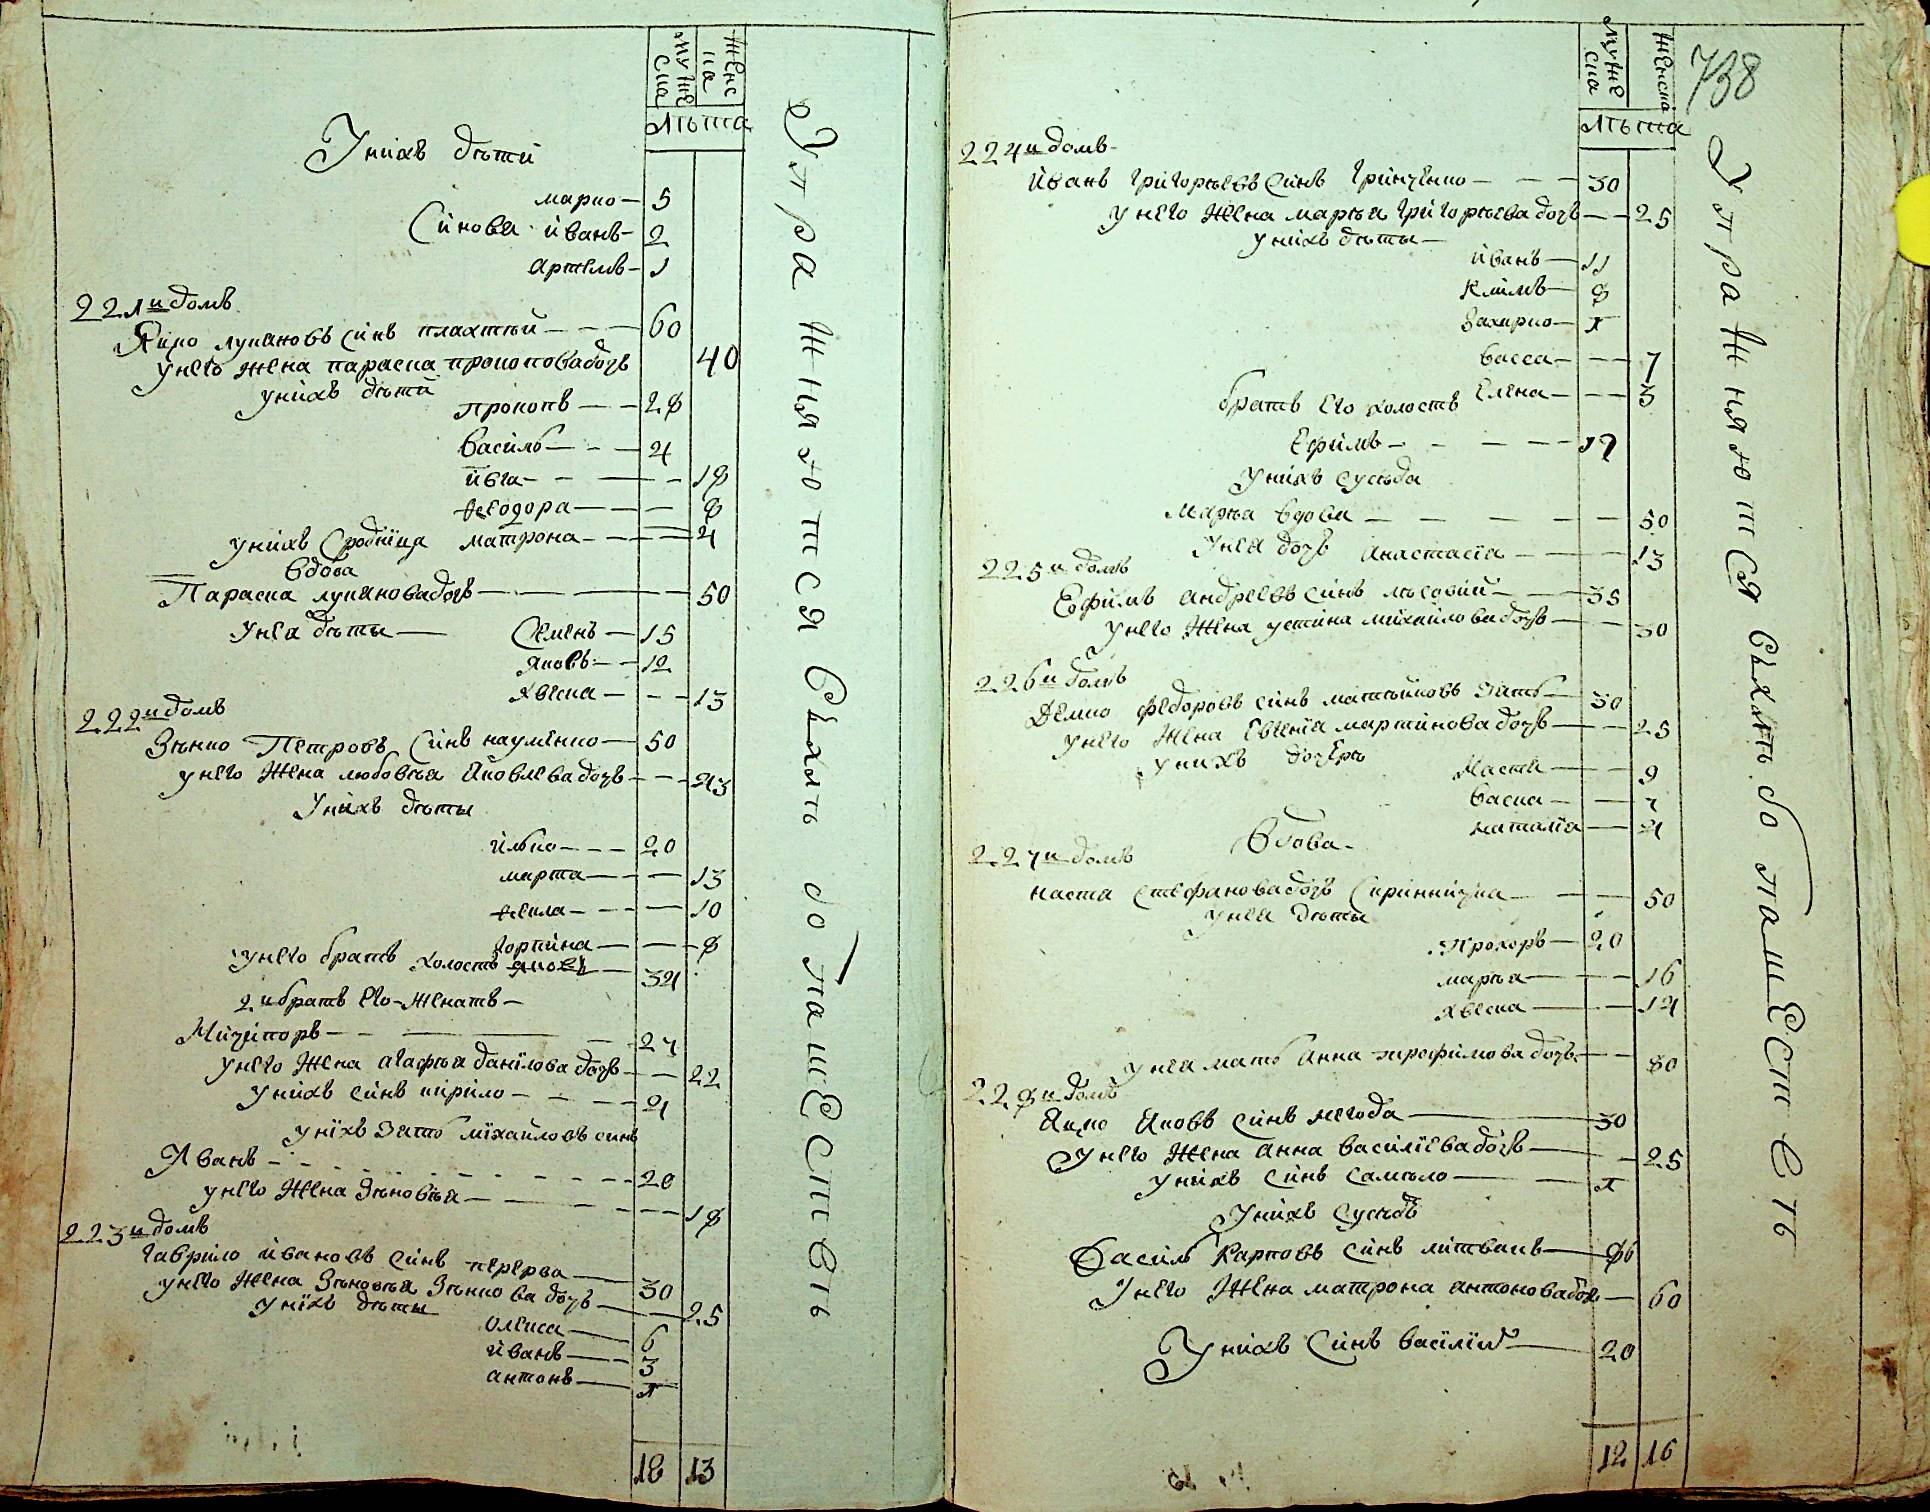 женс
ка
муже
ска
лѣта
Уних дѣти
марко — 5
Синовя иванъ — 2
артемъ — 1
221й домъ
Яцко лукяновъ синъ плахтѣй — 60
унего жена параска прокопова дочъ 40
унихъ дѣти
прокопъ — 28
василь — 4
ивга — 18
феодора — 8
матрона — 4
унихъ сродница
вдова
Параска лукянова дочъ — 50
унея дѣты — Семенъ — 15
яковъ — 12
явгеска — 13
222й домъ
Зѣнко Петровъ синъ науменко — 50
унего жена любовъя яковлева дочъ — 43
Унихъ дѣты
илько — 20
марта — 13
фекла — 10
горпина — 8
унего братъ холостъ яковъ — 34
2й братъ его женатъ —
Ничипоръ — 27
унего жена агафѣя данїлова дочъ — 22
унихъ синъ кирило — 4
унїхъ зать мїхайловъ синъ
Иванъ — 20
унего жена зѣновѣя — 18
223й домъ
гаврило ивановъ синъ перерва — 30
унего жена Зѣновѣя Зѣнкова дочъ — 25
унїхъ дѣты
олекса — 6
иванъ — 3
антонъ — 1
18 13
Упражняются вѣхать бо пашествъ
738
женска
муже
ска
лѣта
224й домъ
иванъ григорѣевъ синъ гринченко — 30
унего жена марѣя григорѣева дочъ — 25
унихъ дѣты —
иванъ — 11
клїмъ — 8
захарко — 1
васса — 7
елена — 3
братъ его холостъ
Ефимъ — 17
унихъ сусѣда
марѣя вдова — 50
унея дочъ анастасїа — 13
225й домъ
Ефимъ андреевъ синъ — 35
унего жена устина михайлова дочъ — 30
226й домъ
Демко федоровъ синъ зать — 30
унего жена евгенїя мартинова дочъ — 25
унихъ дочерѣ
настя — 9
васка — 7
наталїа — 4
227й домъ
вдова —
наста стефанова дочъ — 50
унея дѣты
прохоръ — 20
марѣя — 16
явеска — 14
унея мать анна трофимова дочъ — 80
228й домъ
Яцко яковъ синъ негода — 30
унего жена анна василїева дочъ — 25
унихъ синъ самоло — 1
унихъ сусѣдъ
василь карповъ синъ литвинъ — 86
унего жена матрона антонова дочъ — 60
Унихъ синъ василїй — 20
12 16
Упражняются вѣхать бо пашествъ